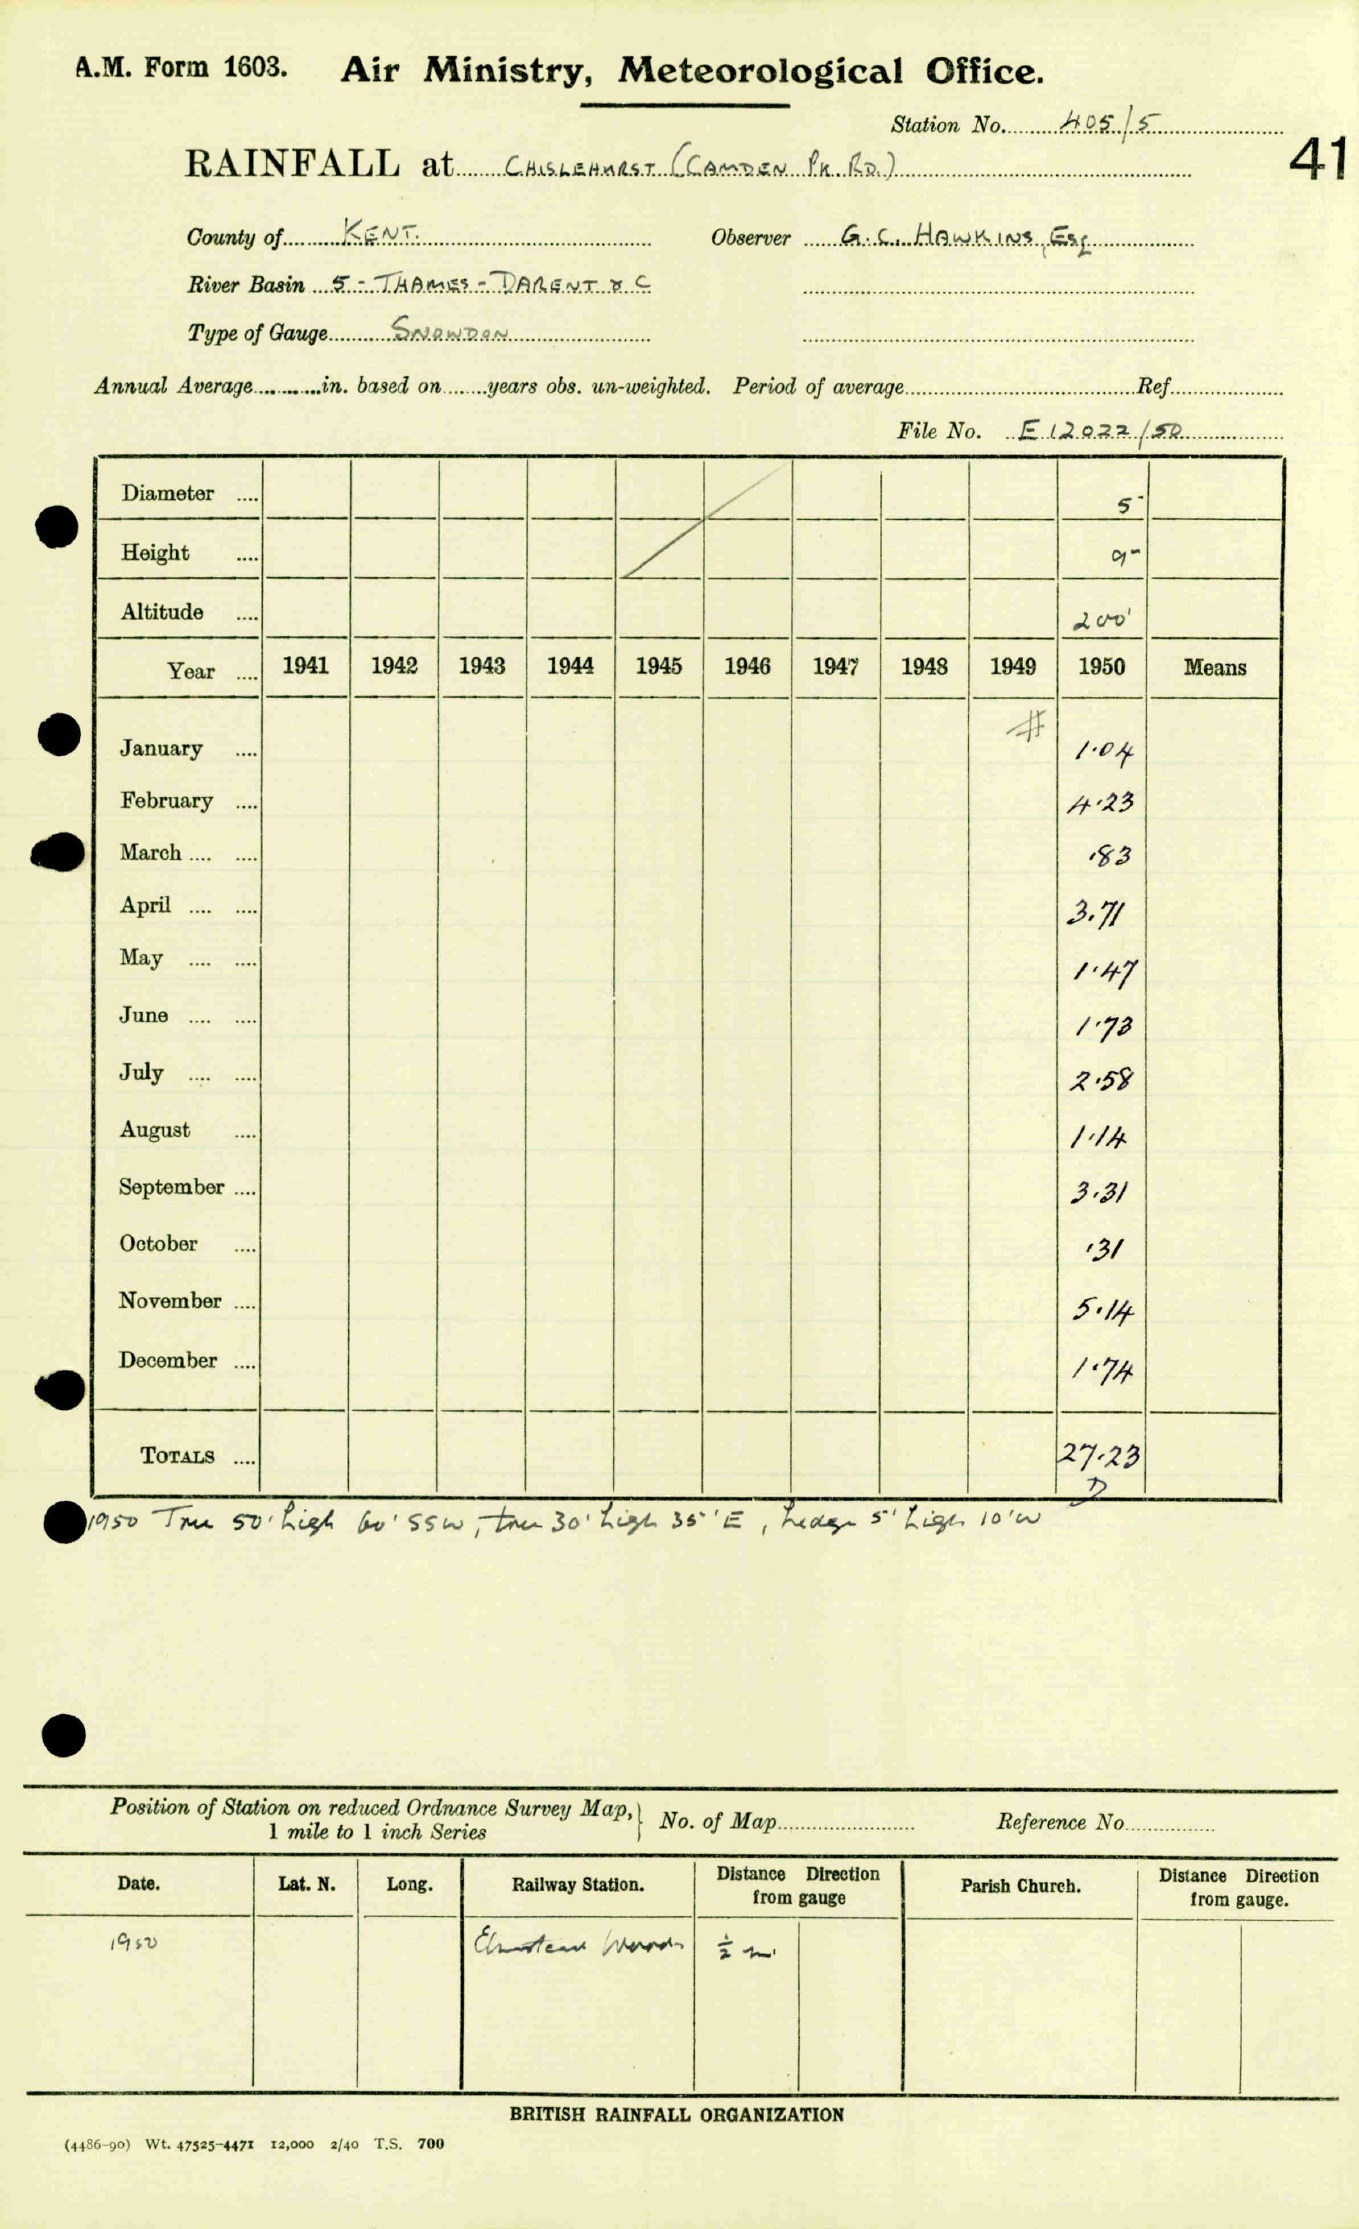 A.M. Form 1603. Air Ministry, Meteorological Office.
Station No. 405/5
41
RAINFALL at CHISLEHURST (CAMDEN PK. RD.)
County of KENT. Observer G. C. HAWKINS, Esq
River Basin 5 - THAMES - DARENT & C
Type of Gauge SNOWDON
Annual Average in. based on years obs. un-weighted. Period of average Ref.
File No. E12022/50
Diameter .... 5"
Height .... 9"
Altitude .... 200'
Year .... 1941 1942 1943 1944 1945 1946 1947 1948 1949 1950 Means
#
January .... 1.04
February .... 4.23
March .... .... .83
April .... .... 3.71
May .... .... 1.47
June .... .... 1.73
July .... .... 2.58
August .... 1.14
September .... 3.31
October .... .31
November .... 5.14
December .... 1.74
TOTALS .... 27.23
D
1950 Tree 50' high 60' SSW, tree 30' high 35' E, hedge 5' high 10' W
Position of Station on reduced Ordnance Survey Map, } No. of Map Reference No
1 mile to 1 inch Series
Date. Lat. N. Long. Railway Station. Distance Direction from gauge Parish Church. Distance Direction from gauge.
1950 Elmstead Woods ½ m.
BRITISH RAINFALL ORGANIZATION
(4486-90) Wt. 47525-4471 12,000 2/40 T.S. 700